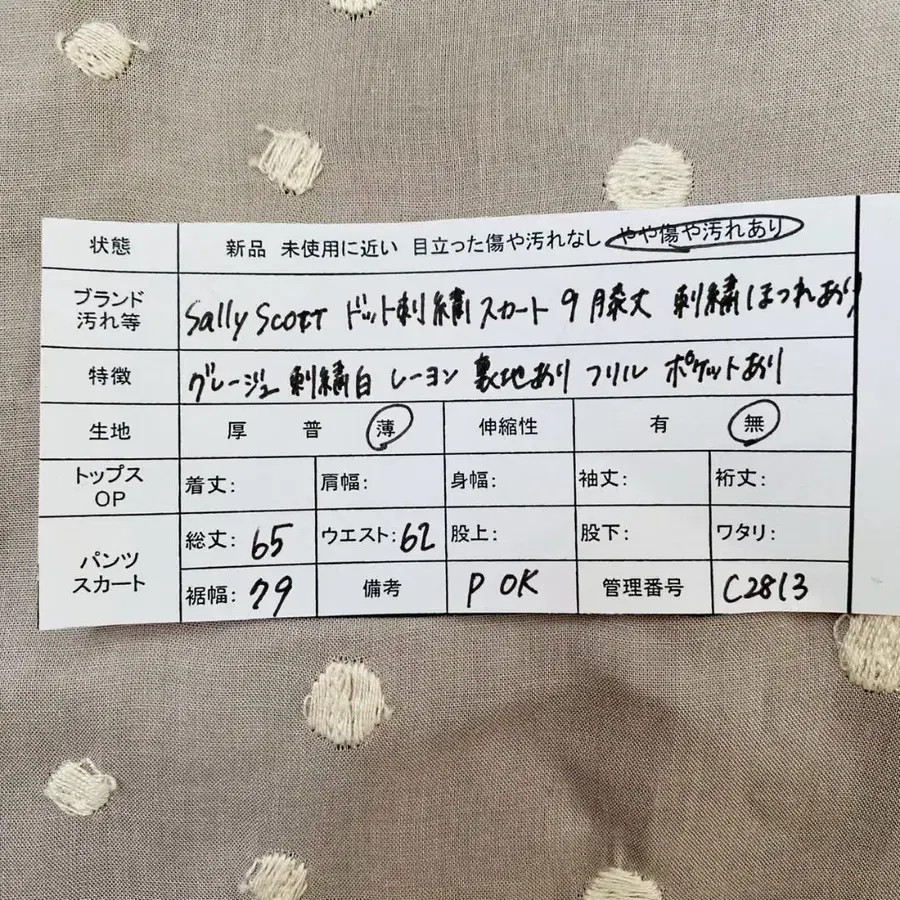 状態 新品 未使用に近い 目立った傷や汚れなし やや傷や汚れあり
ブランド 汚れ等 Sally Scott ドット刺繍スカート 9 膝丈 刺繍ほつれあり
特徴 グレージュ 刺繍白 レーヨン 裏地あり フリル ポケットあり
生地 厚 普 薄 伸縮性 有 無
トップス OP 着丈: 肩幅: 身幅: 袖丈: 裄丈:
パンツ スカート 総丈: 65 ウエスト: 62 股上: 股下: ワタリ:
裾幅: 79 備考 P OK 管理番号 C2813